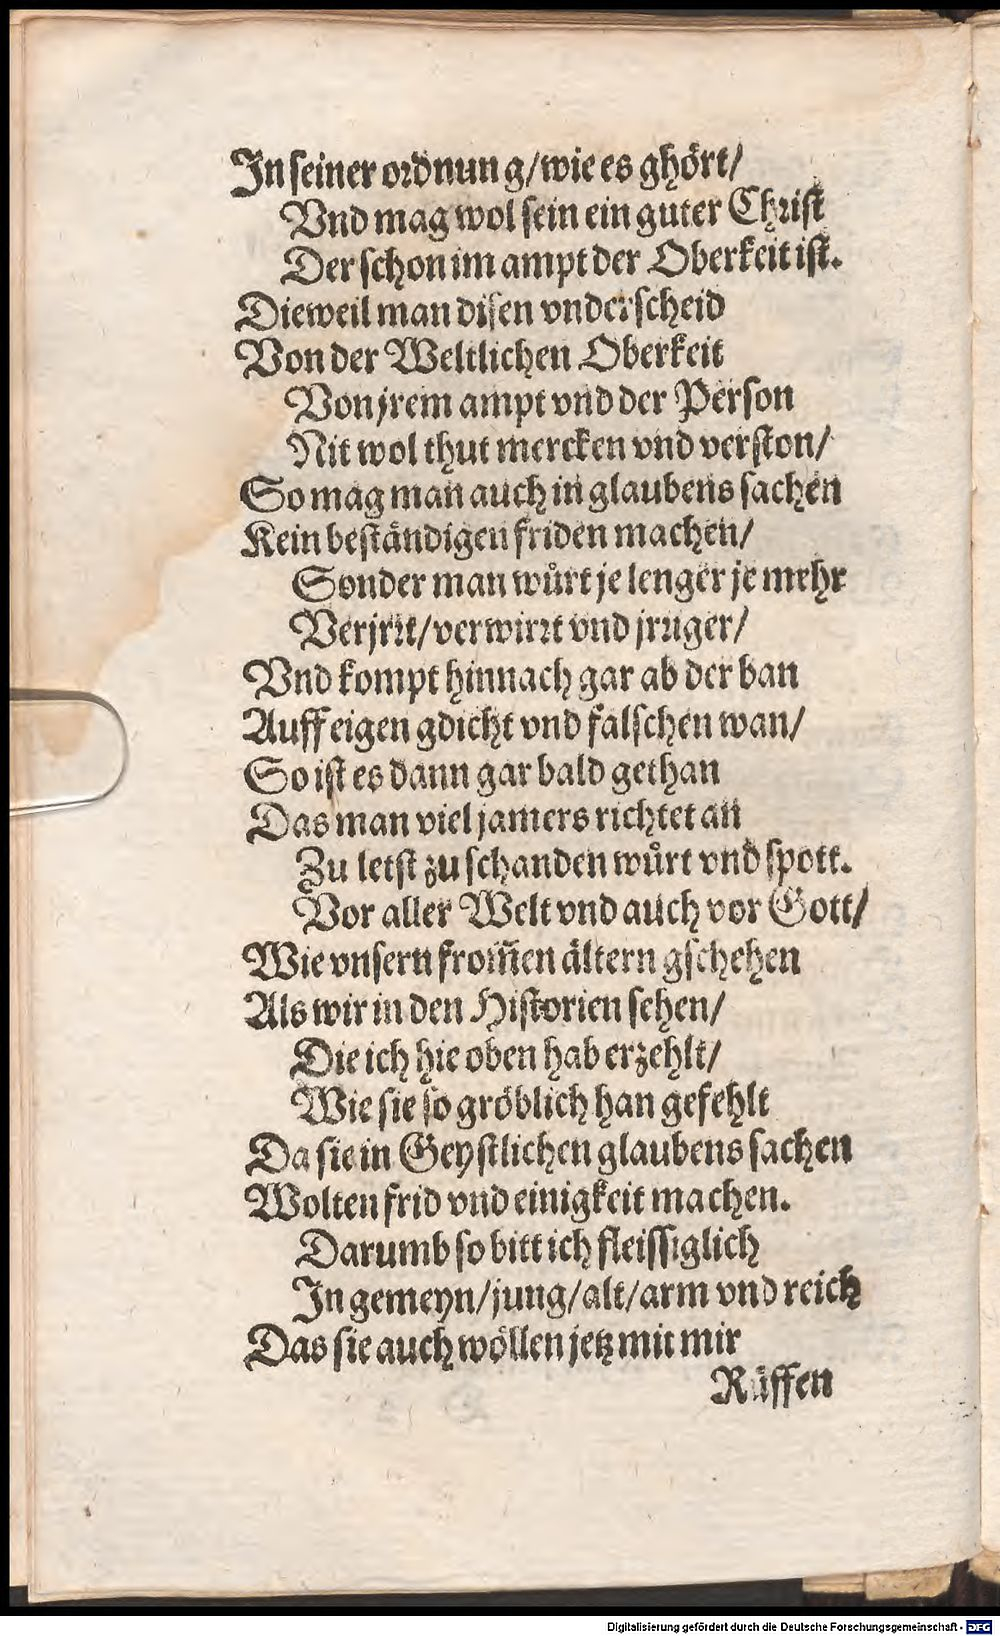 In ſeiner ordnung/wie es ghört/
Vnd mag wol ſein ein guter Chriſt
Der ſchon im ampt der Oberkeit iſt.
Dieweil man diſen vnderſcheid
Von der Weltlichen Oberkeit
Von jrem ampt vnd der Person
Nit wol thut mercken vnd verſton/
So mag man auch in glaubens ſachen
Kein beſtändigen friden machen/
Sonder man wůrt je lenger je mehr
Verjrrt/verwirrt vnd jrriger/
Vnd kompt hinnach gar ab der ban
Auff eigen gdicht vnd falſchen wan/
So iſt es dann gar bald gethan
Das man viel jamers richtet an
Zu letſt zu ſchanden wůrt vnd ſpott.
Vor aller Welt vnd auch vor Gott/
Wie vnſern from̃en ältern gſchehen
Als wir in den Hiſtorien ſehen/
Die ich hie oben hab erzehlt/
Wie ſie ſo gröblich han gefehlt
Da ſie in Geyſtlichen glaubens ſachen
Wolten frid vnd einigkeit machen.
Darumb ſo bitt ich fleiſſiglich
In gemeyn/jung/alt/arm vnd reich
Das ſie auch wöllen jetz mit mir
Rüffen
Digitalisierung gefördert durch die Deutsche Forschungsgemeinschaft - DFG